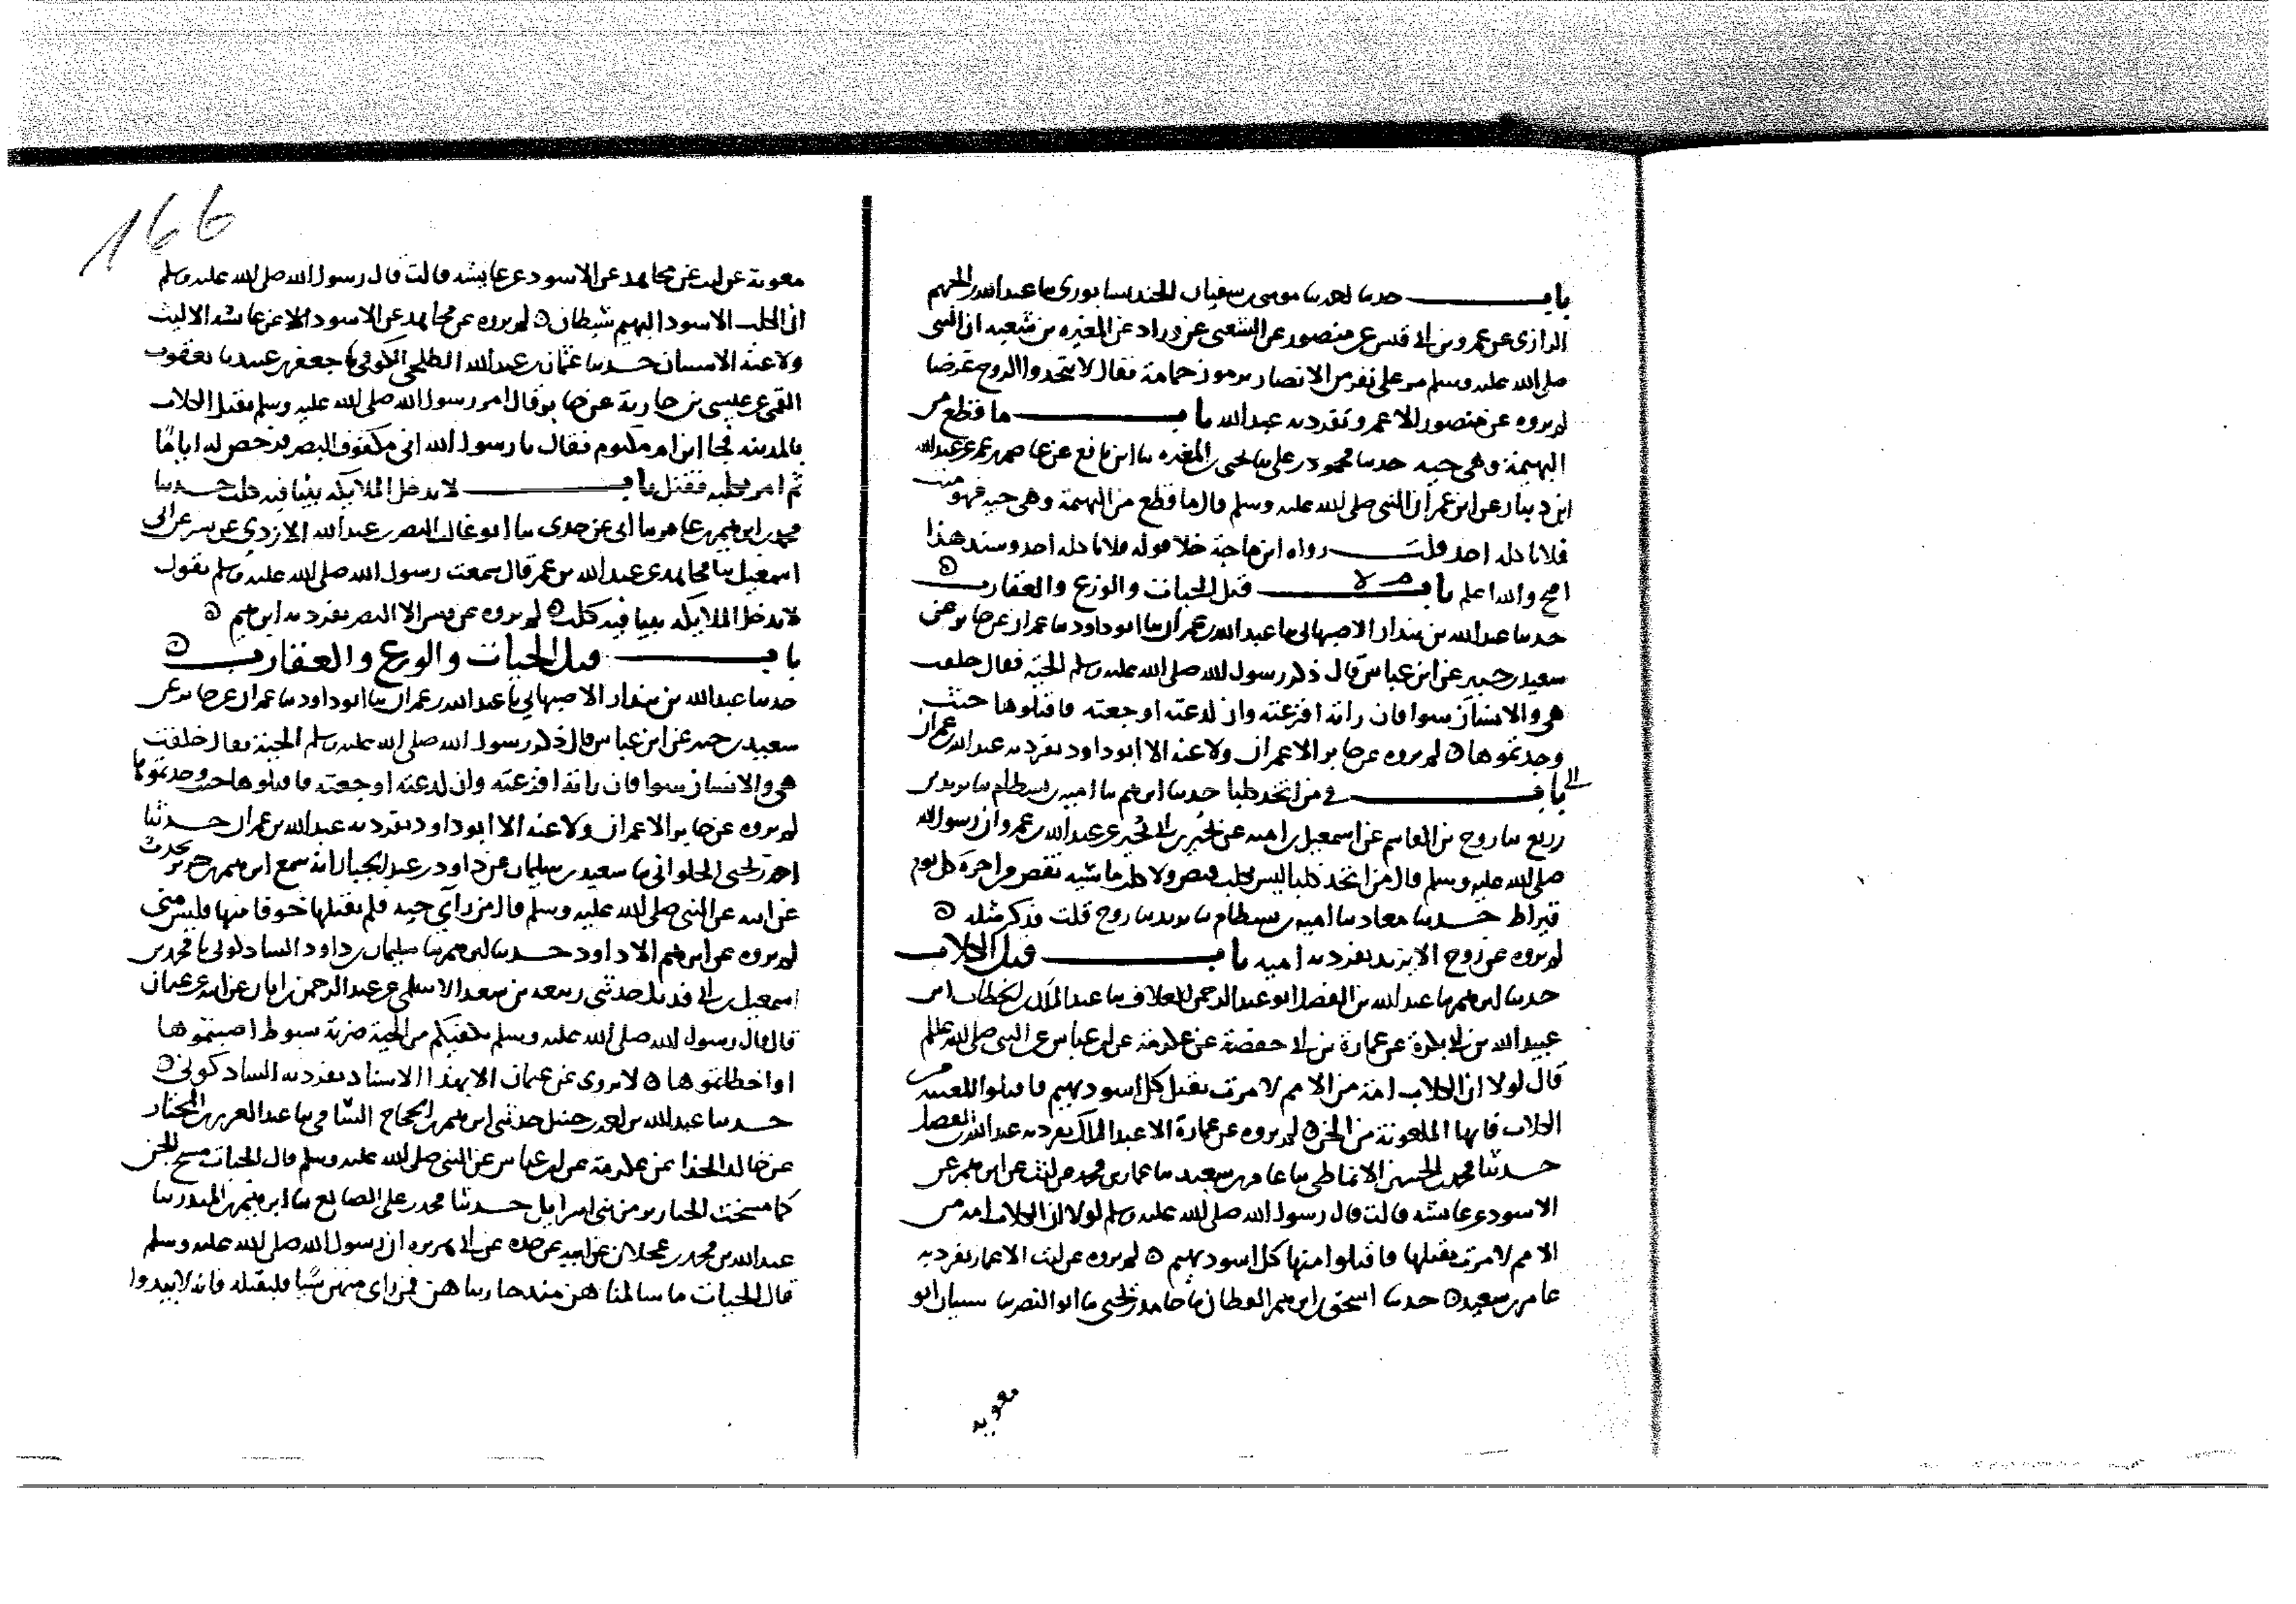 باب حدثنا احمد بنا موسى بن سفيان الجنديسابوري نا عبد الله بن الجهم
الرازي عن عمرو بن ابي قيس عن منصور عن الشعبي عن وراد عن المغيره بن شعبه ان النبي
صلى الله عليه وسلم مر على نفر من الانصار يرمون حمامة فقال لا تتخذوا الروح غرضا
لم يروه عن منصور الا عمرو تفرد به عبد الله باب ما قطع من
البهيمة وهي حيه حدثنا محمود بن علي نا يحيى بن المغيره نا ابن نافع عن عاصم بن عمر عن عبد الله
ابن دينار عن ابن عمر ان النبي صلى الله عليه وسلم قال ما قطع من البهيمة وهي حيه فهو ميت
فلا ياكله احد قلت رواه ابن ماجة خلا قوله فلا ياكله احد وسند هذا
اصح والله اعلم باب قتل الحيات والوزغ والعقارب
حدثنا عبد الله بن بندار الاصبهاني نا عبد الله بن عمران نا ابو داود نا عمران عن جابر عن
سعيد بن جبير عن ابن عباس قال ذكر رسول الله صلى الله عليه وسلم الحية فقال خلقت
هي والانسان سوا فان راته افزعته وان لدغته اوجعته فاقتلوها حيث
وجدتموها لم يروه عن جابر الا عمران ولا عنه الا ابو داود تفرد به عبد الله بن عمران
الى
باب في من اتخذ كلبا حدثنا ابرهيم نا اميه بن بسطام نا يزيد بن
زريع نا روح بن القاسم عن اسمعيل بن اميه عن بحير بن ابي بحير عن عبد الله بن عمرو ان رسول الله
صلى الله عليه وسلم قال من اتخذ كلبا ليس كلب قنص ولا كلب ماشيه نقص من اجره كل يوم
قيراط حدثنا معاذ نا اميه بن بسطام نا يزيد نا روح قلت فذكر مثله
لم يروه عن روح الا يزيد تفرد به اميه باب قتل الكلاب
حدثنا ابرهيم نا عبد الله بن الفضل ابو عبد الرحمن العلاف نا عبد الملك بن الخطاب ابن
عبيد الله بن ابي بكرة عن عمارة بن ابي حفصة عن عكرمة عن ابن عباس عن النبي صلى الله عليه وسلم
قال لولا ان الكلاب امة من الامم لامرت بقتل كل اسود بهيم فاقتلوا المعينه من
الكلاب فانها الملعونة من الجن لم يروه عن عمارة الا عبد الملك تفرد به عبد الله بن الفضل
حدثنا محمد بن الحسن الانماطي نا عامر بن سعيد نا عمار بن محمد عن ليث عن ابرهيم عن
الاسود عن عايشه قالت قال رسول الله صلى الله عليه وسلم لولا ان الكلاب امه من
الامم لامرت بقتلها فاقتلوا منها كل اسود بهيم لم يروه عن ليث الا عمار تفرد به
عامر بن سعيد حدثنا اسحق بن ابرهيم القطان نا حامد بن يحيى نا ابو النضر نا شيبان ابو
معويه
166
معوية عن ليث عن مجاهد عن الاسود عن عايشه قالت قال رسول الله صلى الله عليه وسلم
ان الكلب الاسود البهيم شيطان لم يروه عن مجاهد عن الاسود الا عن عايشه الا ليث
ولا عنه الا شيبان حدثنا عثمان بن عبد الله الطلحي الكوفي نا جعفر بن عبيد نا يعقوب
القمي عن عيسى بن جارية عن جابر قال امر رسول الله صلى الله عليه وسلم بقتل الكلاب
بالمدينه فجا ابن ام مكتوم فقال يا رسول الله اني مكفوف البصر فرخص له اياما
ثم امر بكلبه فقتل باب لا تدخل الملايكه بيتا فيه كلب حدثنا
محمد بن ابرهيم بن عامر نا ابي عن جدي نا ابو غالب النضر بن عبد الله الازدي عن بسر عن ابي
اسمعيل نا مجاهد عن عبد الله بن عمر قال سمعت رسول الله صلى الله عليه وسلم يقول
لا تدخل الملايكه بيتا فيه كلب لم يروه عن بسر الا النضر تفرد به ابرهيم
باب قتل الحيات والوزغ والعقارب
حدثنا عبد الله بن بندار الاصبهاني نا عبد الله بن عمران نا ابو داود نا عمران عن جابر عن
سعيد بن جبير عن ابن عباس قال ذكر رسول الله صلى الله عليه وسلم الحية فقال خلقت
هي والانسان سوا فان راته افزعته وان لدغته اوجعته فاقتلوها حيث وجدتموها
لم يروه عن جابر الا عمران ولا عنه الا ابو داود تفرد به عبد الله بن عمران حدثنا
احمد بن يحيى الحلواني نا سعيد بن سليمان عن داود بن عبد الجبار انه سمع ابرهيم بن جرير يحدث
عن ابيه عن النبي صلى الله عليه وسلم قال من راي حيه فلم يقتلها خوفا منها فليس مني
لم يروه عن ابرهيم الا داود حدثنا ابرهيم نا سليمان بن داود الشاذكوني نا محمد بن
اسمعيل بن ابي فديك حدثني ربيعه بن سعد الاسلمي عن عبد الرحمن بن ابان عن ابيه عن عثمان
قال قال رسول الله صلى الله عليه وسلم يكفيكم من الحية ضربة سوط اصبتموها
او اخطاتموها لا يروى عن عثمان الا بهذا الاسناد تفرد به الشاذكوني
حدثنا عبد الله بن احمد بن حنبل حدثني ابرهيم بن الحجاج السامي نا عبد العزيز بن المختار
عن خالد الحذا عن عكرمة عن ابن عباس عن النبي صلى الله عليه وسلم قال الحيات مسخ الجن
كما مسخت الخنازير من بني اسرايل حدثنا محمد بن علي الصايغ نا ابرهيم بن المنذر نا
عبد الله بن محمد بن عجلان عن ابيه عن جده عن ابي هريره ان رسول الله صلى الله عليه وسلم
قال الحيات ما سالمناهن منذ حاربناهن فمن راى منهن شيا فليقتله فانه لا يبدوا